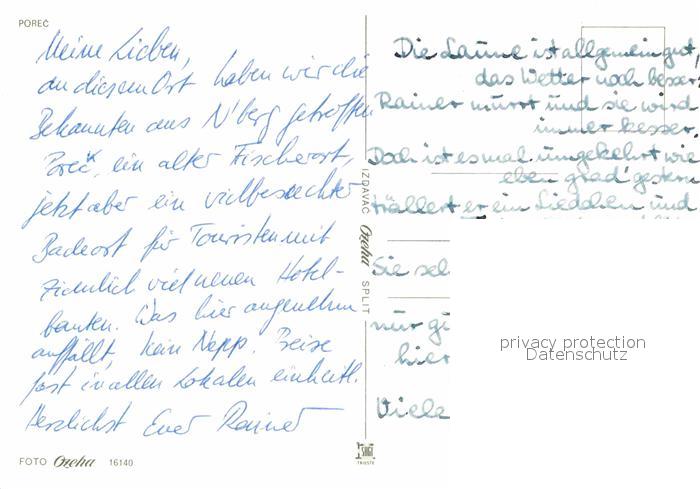 POREČ
Meine Lieben,
an diesem Ort haben wir die
Bekannten aus N'berg getroffen
Poreč, ein alter Fischerort,
jetzt aber ein vielbesuchter
Badeort für Touristen mit
ziemlich viel neuen Hotel-
bauten. Was hier angenehm
auffällt, kein Nepp. Preise
fast in allen Lokalen einheitl.
Herzlichst Euer Rainer
FOTO Ozeha 16140
IZDAVAČ Ozeha SPLIT
SAGI
TRIESTE
Die Laune ist allgemein gut,
das Wetter noch besser.
Rainer murrt und sie wird
immer kesser.
Doch ist es mal umgekehrt wie
eben grad' gestern
trällert er ein Liedchen und
Sie sel
nur gi
hier
Viele
privacy protection
Datenschutz